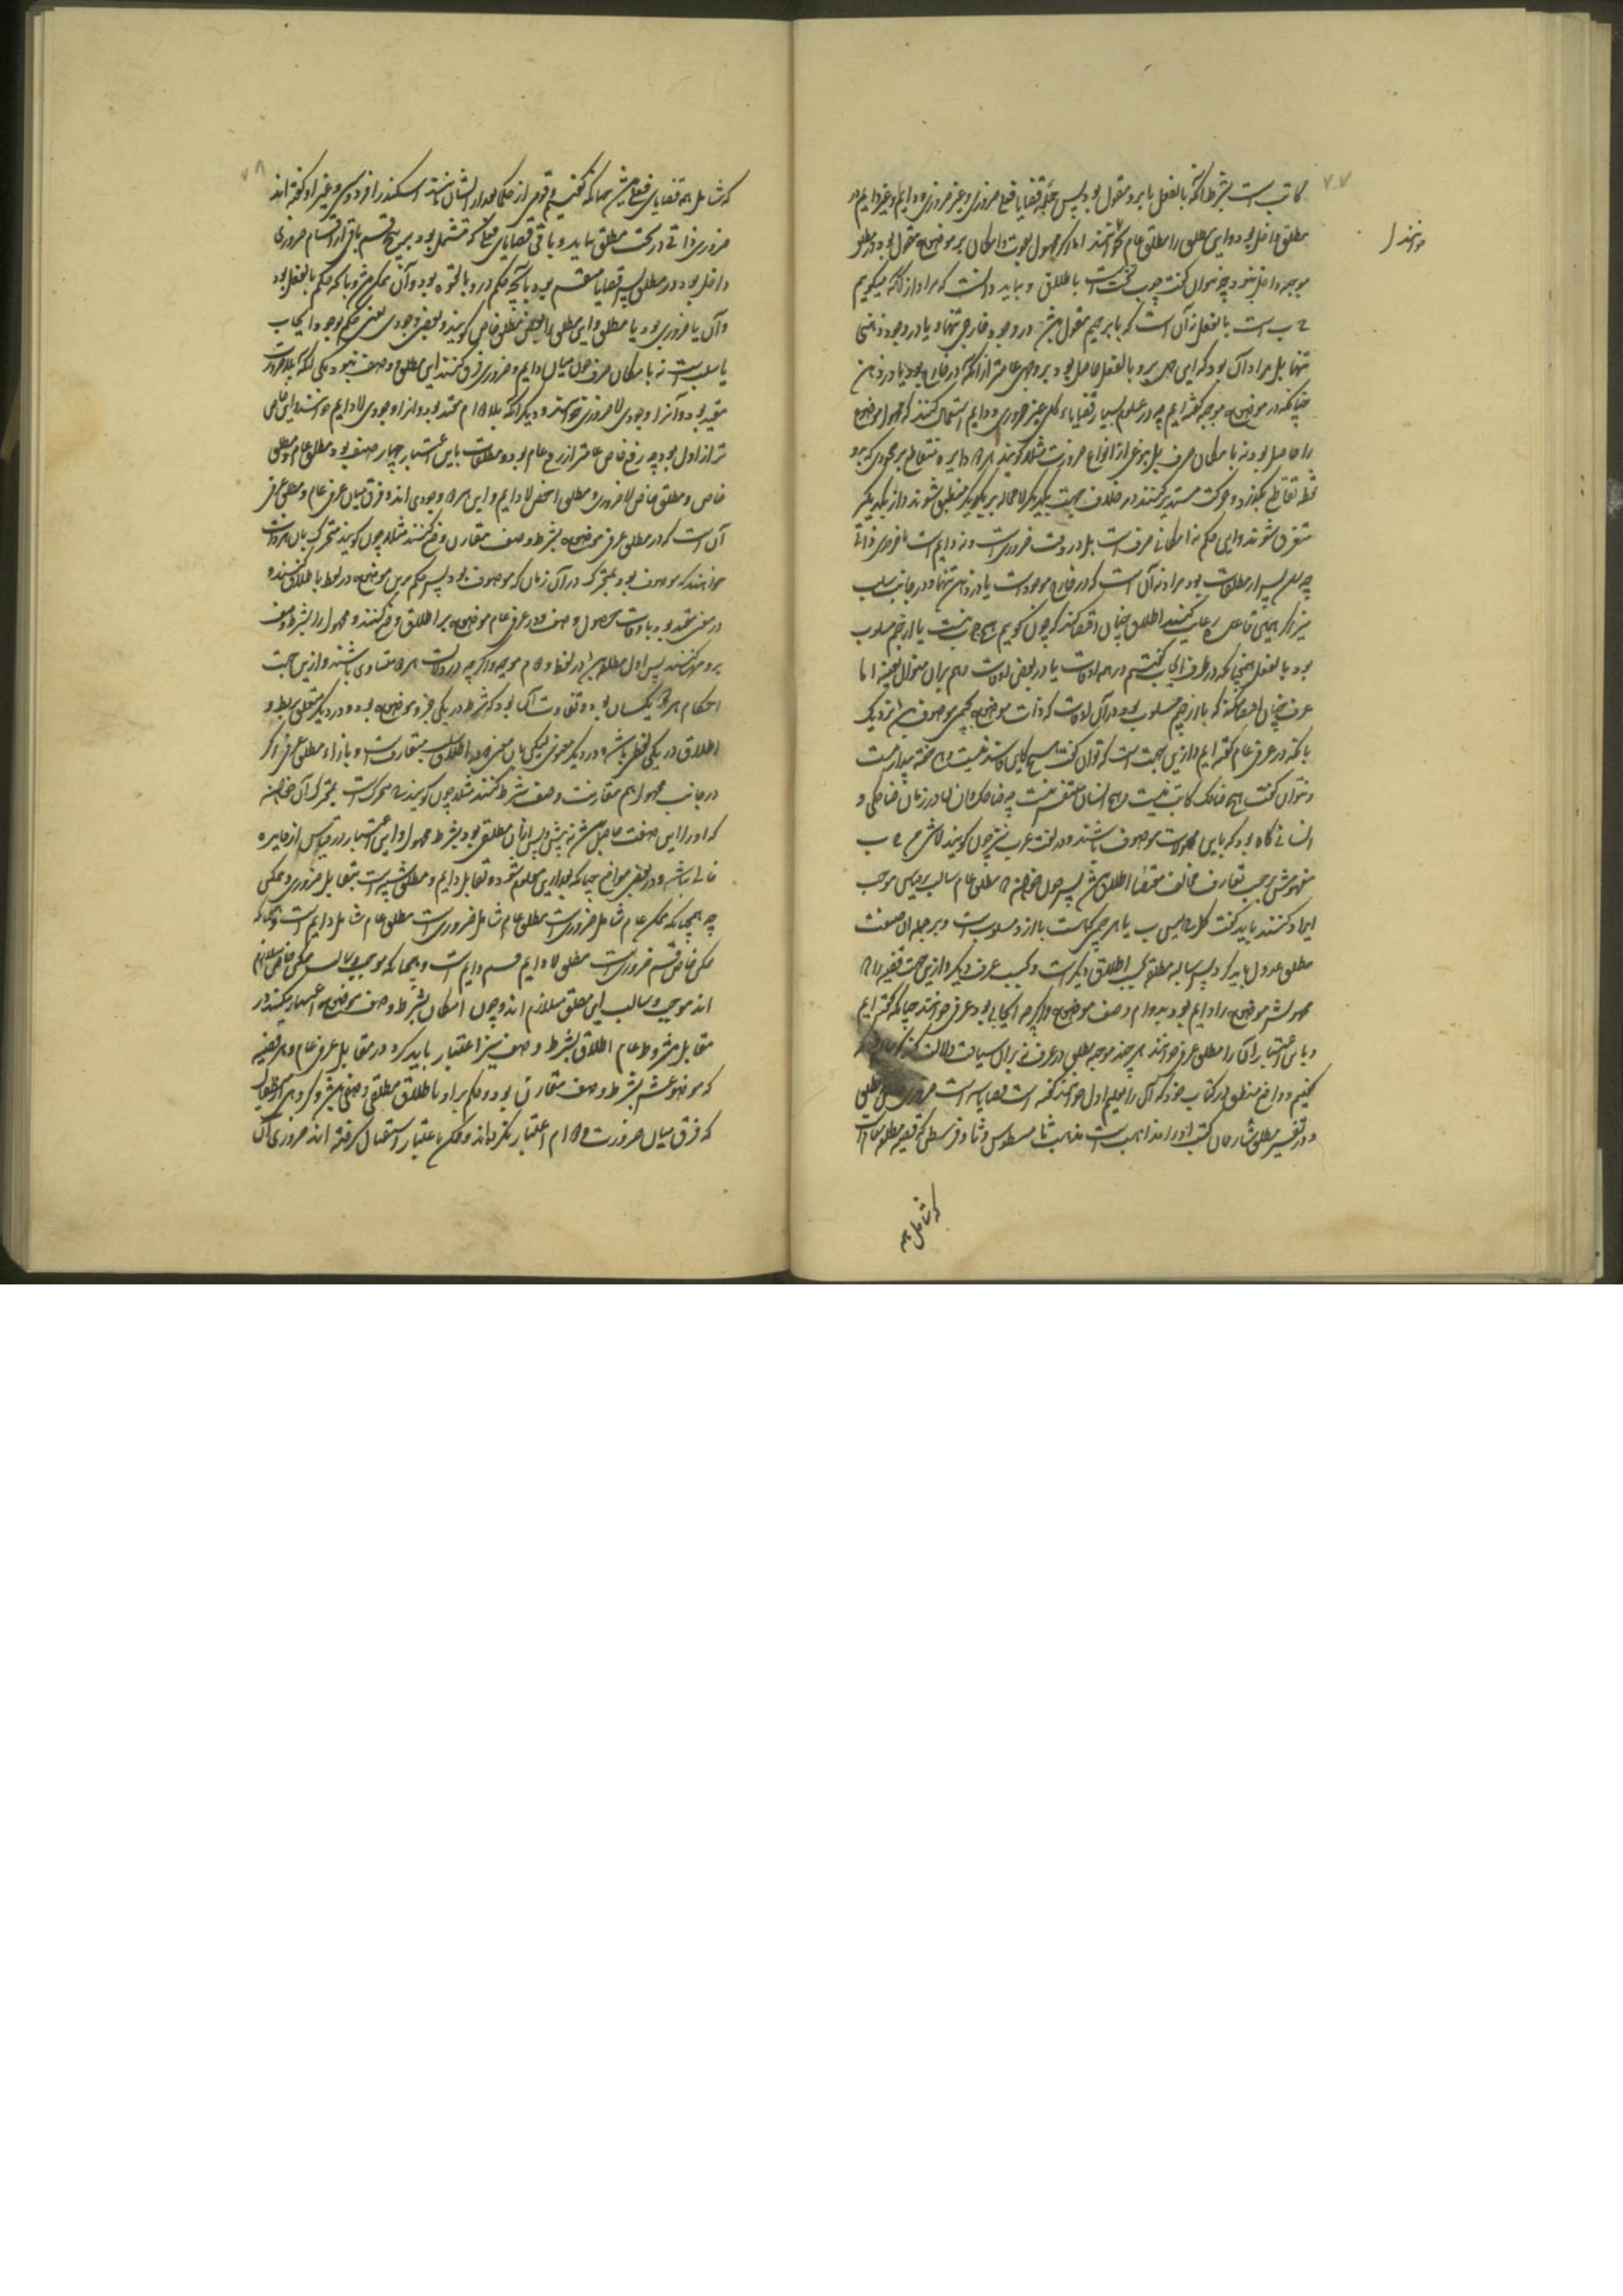 کاتب است بشرط آنکه بالفعل با برو مقول بود پس جمله قضایا فعلی ضروری و غیر ضروری و دایم و غیر دایم در
مطلق داخل بود و این مطلق را مطلق عام خوانند اما آنکه محمول بقوت و امکان بر موضوع مقول بود در مطلق
موجبه داخل نبود چه نتوان گفت چوب تخت است باطلاق و بباید دانست که مراد از آنکه میگوییم
ج ب است بالفعل نه آن است که با بر جیم مقول باشد در وجود خارجی تنها و یا در وجود ذهنی
تنها بل مراد آن بود که این حمل برو بالفعل حاصل بود بر وجهی عامتر از آنکه در خارج بود یا در ذهن
چنانکه در موضوع موجبه گفته ایم چه در علوم بسیار قضایاء کلی غیر ضروری و دایم استعمال کنند که محمول موضوع
را حاصل بود نه بامکان صرف بل بنوعی از انواع ضرورت مثلا گویند هر دو دایره متقاطع بر محوری که برو
نقطه تقاطع بگذرد و حرکت مستدیر کنند در خلاف جهت یکدیگر لامحاله بر یکدیگر منطبق شوند و از یکدیگر
متفرق شوند و این حکم نه امکانی صرف است بل در وقت ضروری است و نه دایم است یا ضروری ذاتی
چه
نیز اگر همین قاعده رعایت کنند اطلاق چنان اقتضا کند که چون گوییم هیچ ج ب نیست با از جیم مسلوب
بود بالفعل همچنانکه در طرف ایجاب گفتیم در همه اوقات یا در بعضی اوقات هم بران منوال بعینه اما
عرف چنان اقتضا کند که با از جیم مسلوب بود در آن اوقات که ذات موضوع بجیمی موصوف باشد نزدیک
بانکه در عرفی عام گفته ایم و ازین جهت است که توان گفت هیچ کاین فاسد نیست و هیچ خفته بیدار نیست
و نتوان گفت هیچ ضاحک کاتب نیست و هیچ انسان متنفس نیست چه ضاحک و انسان در زمان ضاحکی و
انسانی گاه بود که باین محمولات موصوف باشند و در لغت عرب نیز چون گویند لا شی من ج ب
مفهومش بحسب تعارف مخالف مقتضاء اطلاق باشد پس چون خواهند که مطلق عام سالب بر قیاس موجب
ایراد کنند باید گفت کل ج لیس ب یا هر چه ج است با ازو مسلوب است و بر جمله از صیغت
مطلق عدول باید کرد پس سالبه مطلق بحسب اطلاق دیگر است و بحسب عرف دیگر و ازین جهت قضیه را که
محمولش موضوع را دایم بود بدوام وصف موضوع و اگر چه ایجابی بود عرفی خوانند چنانکه گفته ایم
و باین اعتبار آن را مطلق عرفی خوانند هر چند موجبه مطلق در عرف نیز بران سیاقت دلالت
کنیم و واضع منطق در کتاب خود که آن را تعلیم اول خوانند گفته است قضایا سه است ضروری
و در تفسیر مطلق شارحان کتب او را مذاهب است مذهب ثامسطیوس و ثاوفرسطس که قضیه مطلق عام است
خوانند
که شامل همه
۷۷
۷۸
که شامل همه قضایای فعلی باشد همچنانکه گفتیم و قومی از حکما بعد از ایشان مانند اسکندر افرودیسی و غیر او گفته اند
ضروری ذاتی در تحت مطلق نیاید و باقی قضایای فعلی که مشتمل بود بر پنج قسم باقی از اقسام ضروری
داخل بود در مطلق پس قضایا منقسم بود بآنچه حکم درو بالقوه بود و آن ممکن باشد و بآنکه حکم بالفعل بود
و آن یا ضروری بود یا مطلق و این مطلق را بعضی مطلق خاص گویند و بعضی وجودی یعنی حکم بوجود ایجاب
یا سلب است نه بامکان صرف چون میان دایم و ضروری فرق کنند این مطلق دو صنف بود یکی آنکه بلاضرورت
مقید بود و آنرا وجودی لاضروری خوانند و دیگر آنکه بلادوام مقید بود و آنرا وجودی لادایم خوانند و این خاص
تر از اول بود چه رفع خاص عامتر از رفع عام بود و مطلقات باین اعتبار چهار صنف بود مطلق عام و مطلق
خاص و مطلق خاص لاضروری و مطلق اخص لادایم و این هر دو وجودی اند و فرق میان عرفی عام و مطلق عرفی
آن است که در مطلق عرفی موضوع بشرط وصف مقارن وضع کنند مثلا چون گویند متحرک بان
خواهند که موصوف بود بمتحرک در آن زمان که موصوف بود پس حکم برین موضوع در لفظ باطلاق کنند و
در معنی مقید بود باوقات حصول وصف و در عرفی عام موضوع بر اطلاق وضع کنند و محمول را بشرط وصف
برو حمل کنند پس اول مطلق باشد در لفظ و دوم موجه و اگر چه در دلالت هر دو متساوی باشند و ازین جهت
احکام هر دو یکسان بود و تفاوت آن بود که شرط در یکی جزو موضوع بود و در دیگر متعلق بربط و
اطلاق در یکی لفظی باشد و در دیگر معنوی لیکن باین معنی در اطلاق سلب متعارف است و بازاء مطلق عرفی اگر
در جانب محمول هم مقارنت وصف شرط کنند مثلا چون گویند ج متحرک است بمتحرک آن خواهند
که او را این صفت حاصل باشد نه پیش و پس از آن مطلق بود بشرط محمول و این اعتبار در قیاس از فایده
خالی نباشد و در بعضی مواضع چنانکه بعد ازین معلوم شود و تقابل دایم و مطلق شبیه است بتقابل ضروری و ممکن
چه همچنانکه ممکن عام شامل ضروری است مطلق عام شامل ضروری است مطلق عام شامل دایم است و چنانکه
ممکن خاص قسیم ضروری است مطلق لادایم قسیم دایم است و همچنانکه موجب و سالب ممکن خاص متلازم
اند موجب و سالب این مطلق متلازم اند و چون امکان بشرط وصف موضوع اعتبار میکنند در
مقابل مشروط عام اطلاق بشرط وصف نیز اعتبار باید کرد در مقابل عرفی عام و هر قضیه
که موضوعش بشرط وصف مقارن بود و حکم برو باطلاق مطلق وصفی باشد و گروهی
که فرق میان ضرورت و دوام اعتبار نکرده اند و ممکن باعتبار استقبال گرفته اند ضروری آن